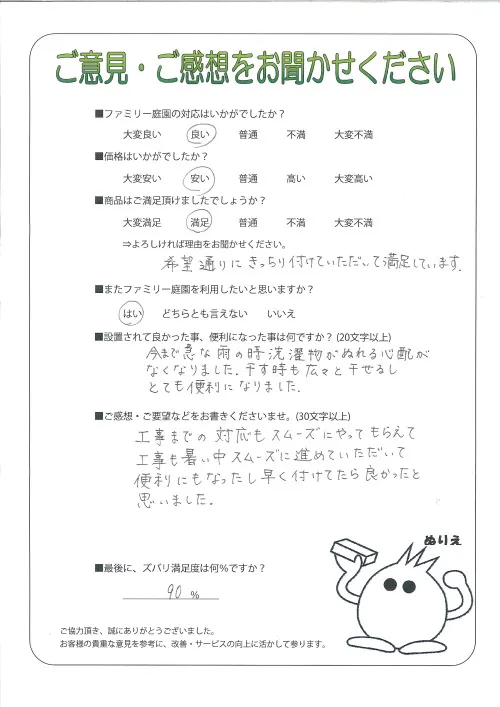 ご意見・ご感想をお聞かせください
■ファミリー庭園の対応はいかがでしたか？
大変良い 良い 普通 不満 大変不満
■価格はいかがでしたか？
大変安い 安い 普通 高い 大変高い
■商品はご満足頂けましたでしょうか？
大変満足 満足 普通 不満 大変不満
⇒よろしければ理由をお聞かせください。
希望通りにきっちり付けていただいて満足しています.
■またファミリー庭園を利用したいと思いますか？
はい どちらとも言えない いいえ
■設置されて良かった事、便利になった事は何ですか？(20文字以上)
今まで急な雨の時洗濯物がぬれる心配が
なくなりました.干す時も広々と干せるし
とても便利になりました.
■ご感想・ご要望などをお書きくださいませ。(30文字以上)
工事までの対応もスムーズにやってもらえて
工事も暑い中スムーズに進めていただいて
便利にもなったし早く付けてたら良かったと
思いました.
ぬりえ
■最後に、ズバリ満足度は何％ですか？
90 %
ご協力頂き、誠にありがとうございました。
お客様の貴重な意見を参考に、改善・サービスの向上に活かして参ります。